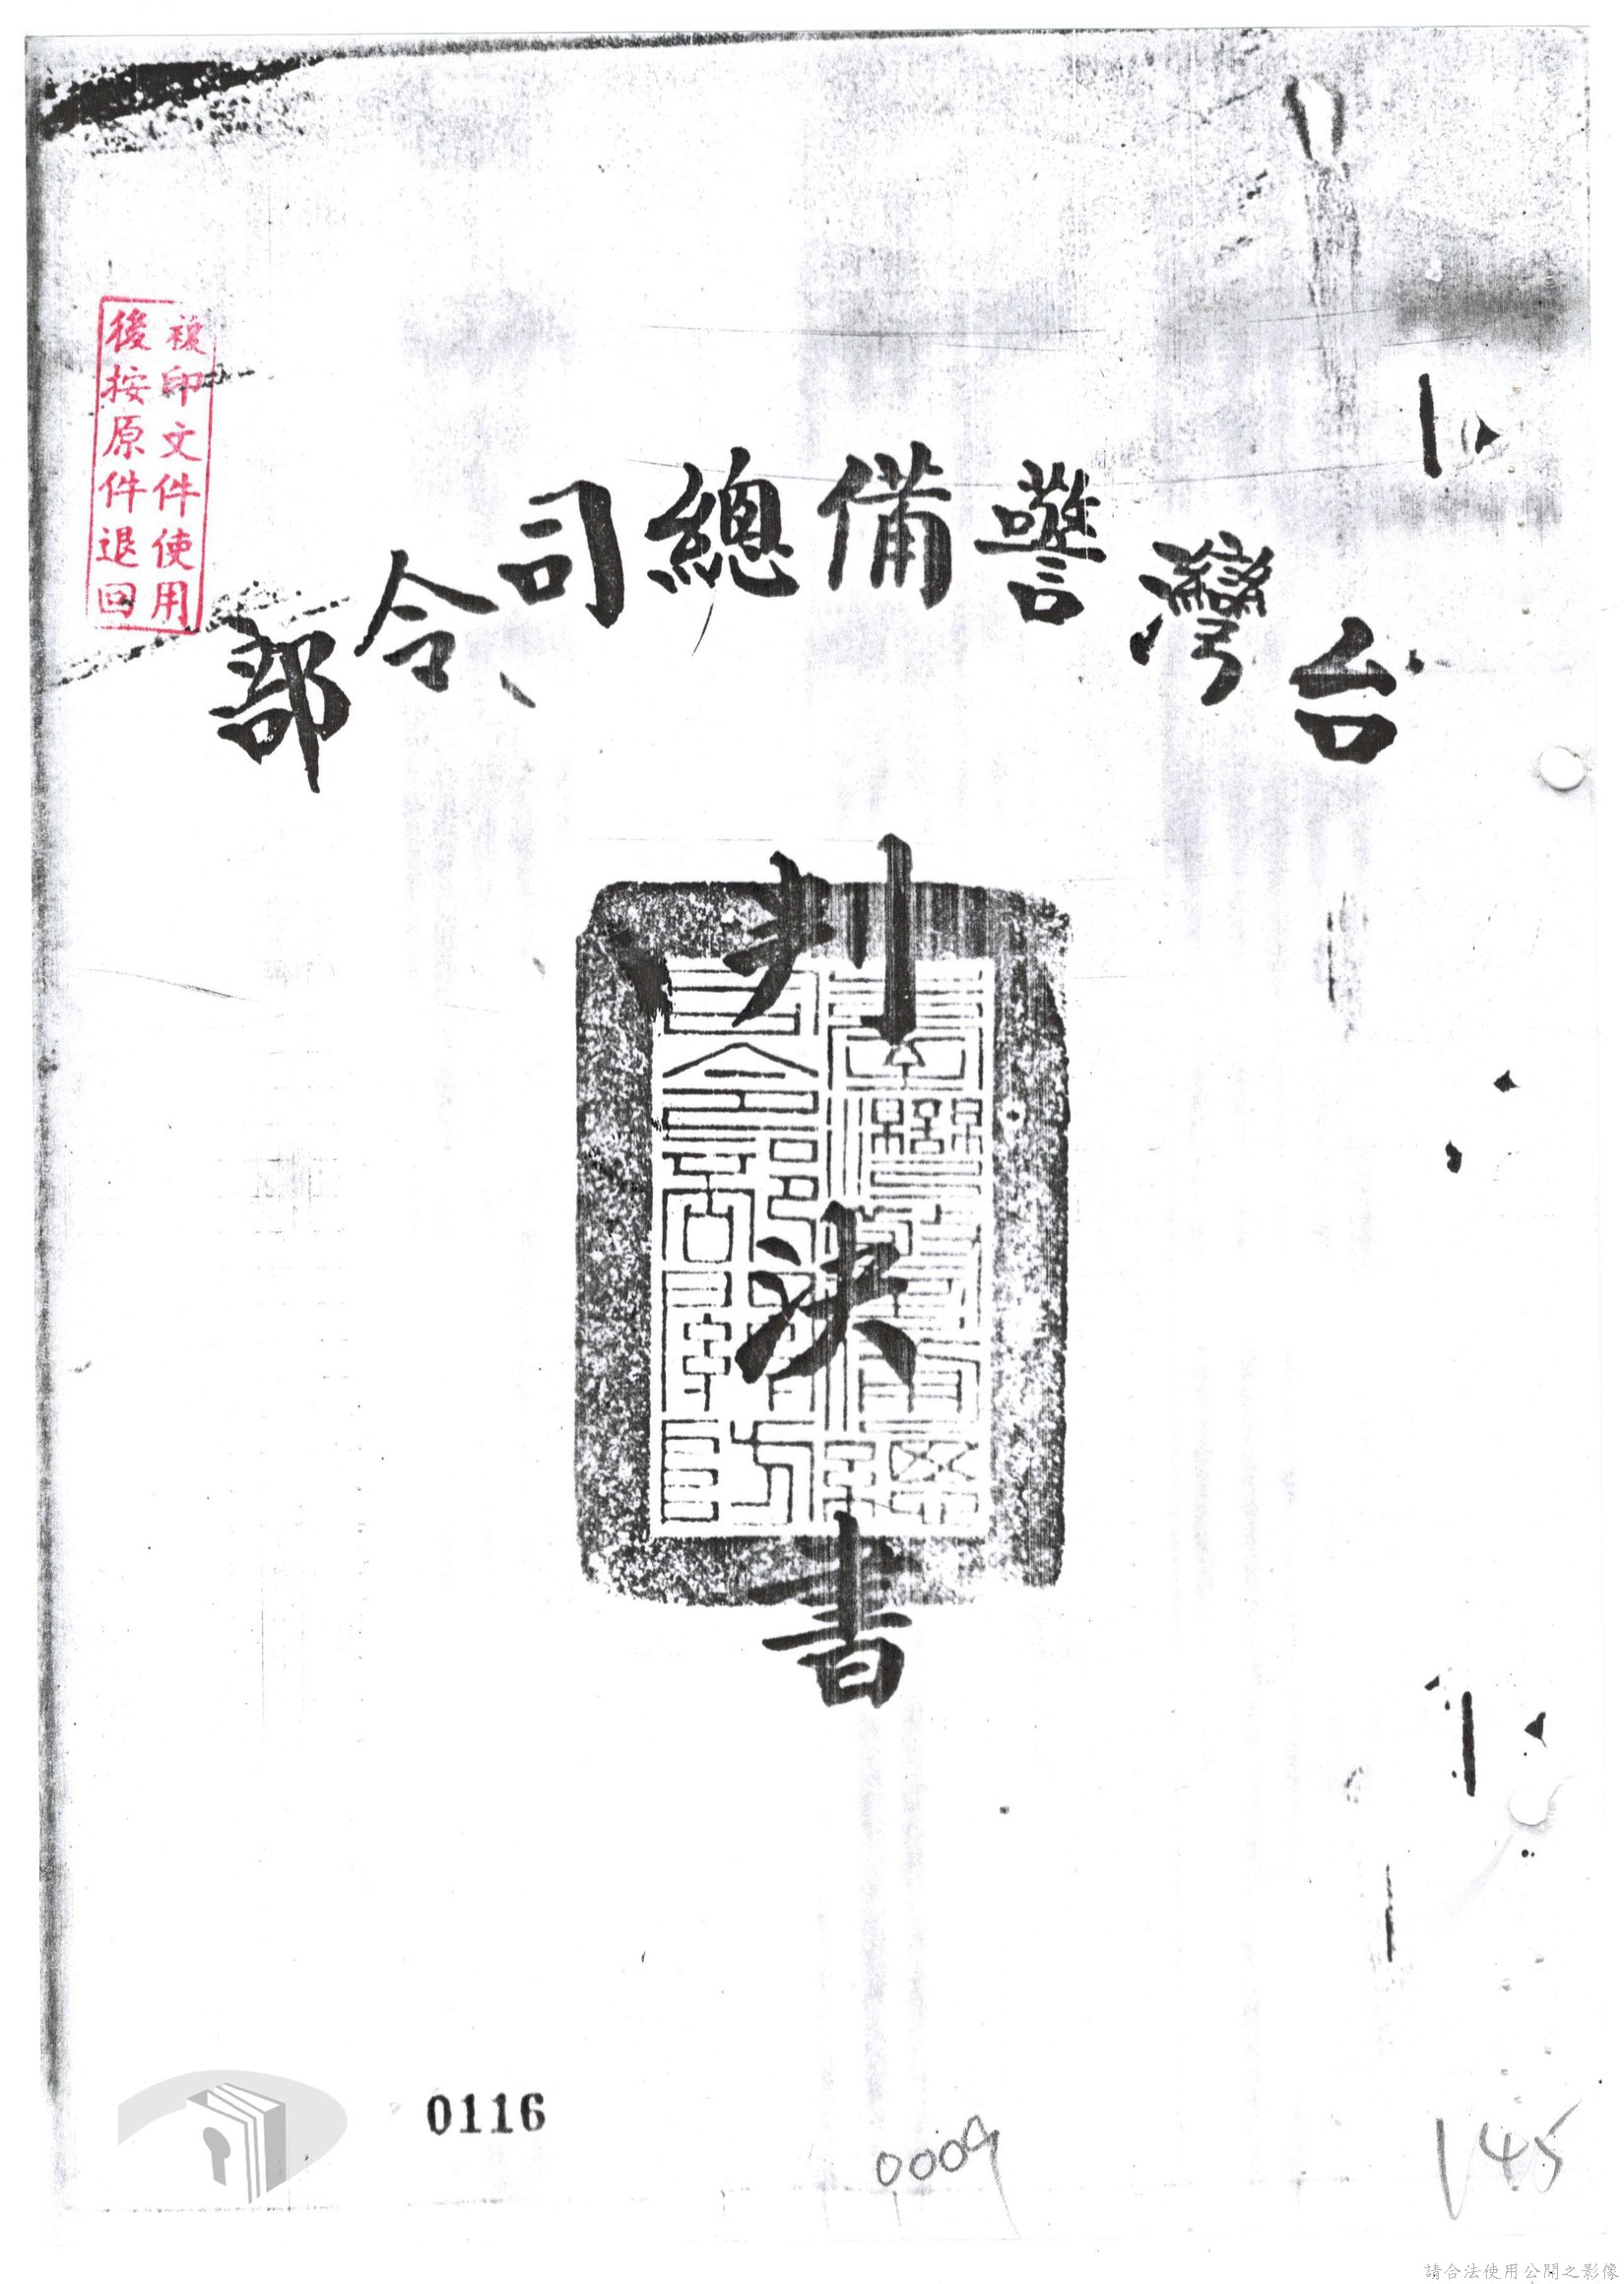 複印文件使用
後按原件退回
台灣警備總司令部
判決書
0116
0009
145
請合法使用公開之影像